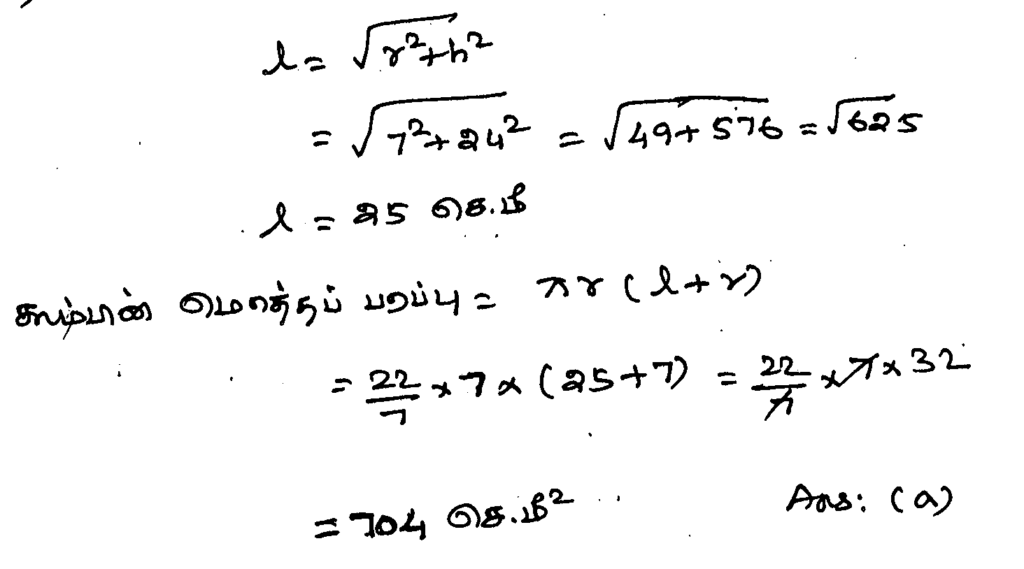 l = √r²+h²
= √7²+24² = √49+576 = √625
l = 25 செ.மீ
கூம்பின் மொத்தப் பரப்பு = πr (l+r)
= 22/7 x 7 x (25+7) = 22/7 x 7 x 32
= 704 செ.மீ² Ans: (a)